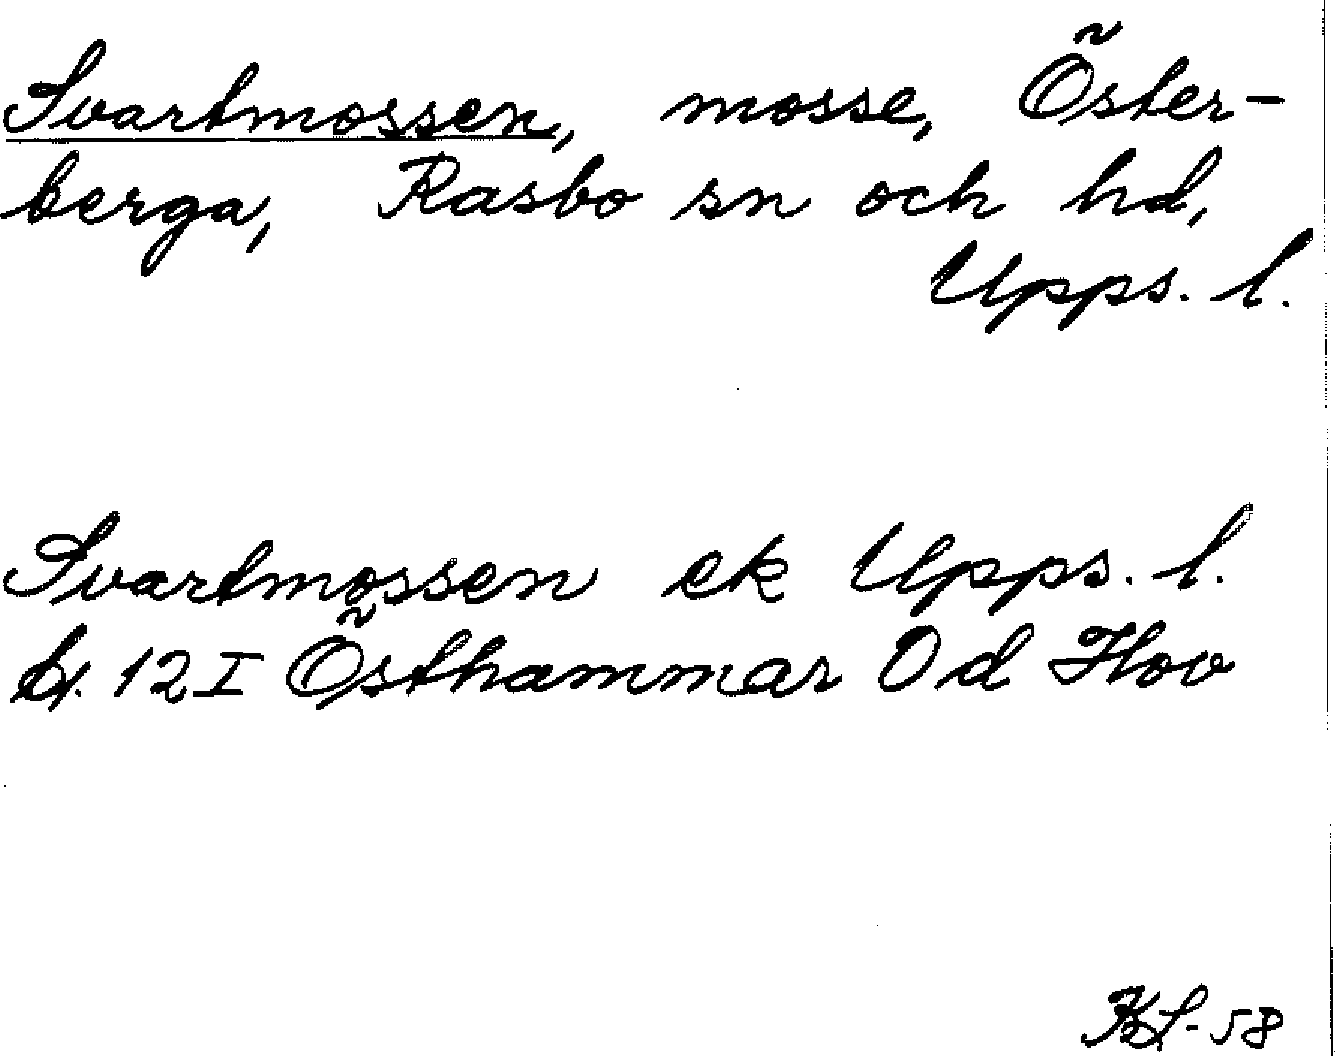 Svartmossen, mosse, Öster-
berga, Rasbo sn och hd,
Upps. l.
Svartmossen ek Upps. l.
bl. 12 I Östhammar Od Hov
-58